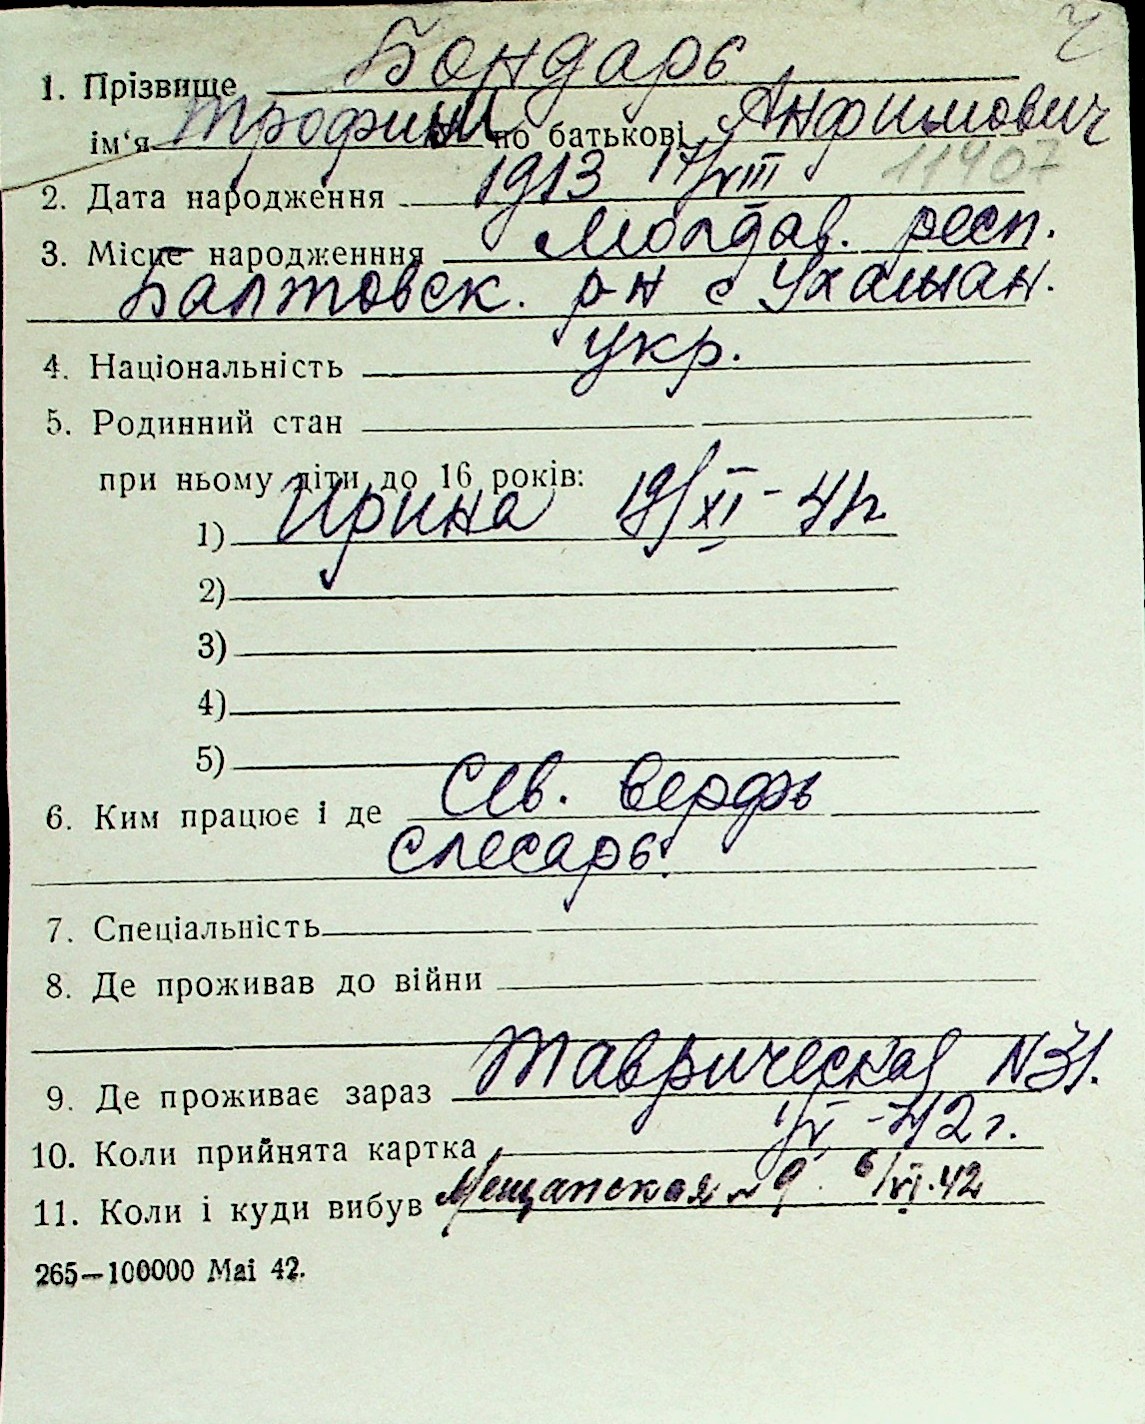 Ч
1. Прізвище Бондарь
ім'я Трофим по батькові Анфимович
11407
2. Дата народження 1913 17/VIII
3. Місце народженння Молдав. респ.
Балтовск. р-н с
4. Національність укр.
5. Родинний стан
при ньому діти до 16 років:
1) Ирина 19/XI - 41г.
2)
3)
4)
5)
6. Ким працює і де Сев. верфь
Слесарь.
7. Спеціальність
8. Де проживав до війни
9. Де проживає зараз Таврическая N31.
10. Коли прийнята картка 1/V - 42 г.
11. Коли і куди вибув Мещанская N 9. 6/VI.42
265—100000 Mai 42.